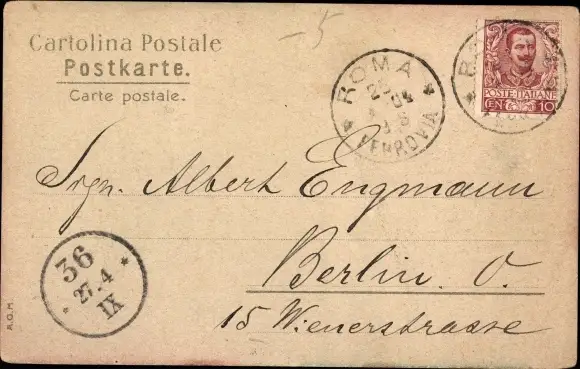 -5
Cartolina Postale
Postkarte.
Carte postale.
ROMA
04
FERROVIA
POSTE ITALIANE
CEN 10
Sgn. Albert Engmann
Berlin. O.
15 Wienerstrasse
36
* 27.4 *
IX
A.G.M.